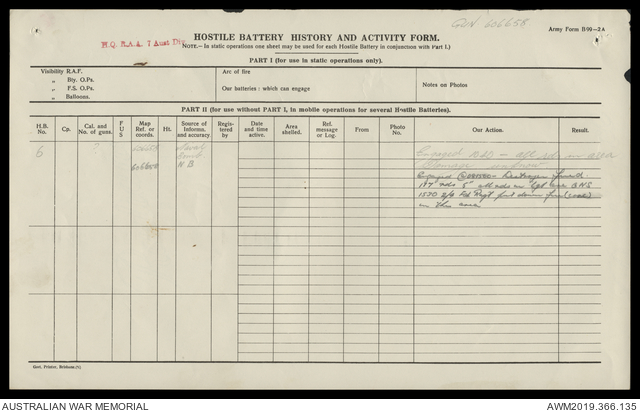 GUN 606658
H.Q. R.A.A. 7 Aust Div
HOSTILE BATTERY HISTORY AND ACTIVITY FORM.
Army Form B99—2A
NOTE.—In static operations one sheet may be used for each Hostile Battery in conjunction with Part I.)
PART I (for use in static operations only).
Visibility R.A.F.
„ Bty. O.Ps.
„ F.S. O.Ps.
„ Balloons.
Arc of fire
Our batteries: which can engage
Notes on Photos
PART II (for use without PART I, in mobile operations for several Hostile Batteries).
H.B. No.
Cp.
Cal. and No. of guns.
F U S
Map Ref. or coords.
Ht.
Source of Informn. and accuracy.
Registered by
Date and time active.
Area shelled.
Ref. message or Log.
From
Photo No.
Our Action.
Result.
6
?
606658
Naval
Bomb
H B
Engaged — all rds in area
Engaged — Destroyer fired
197 rds 5" all rds in tgt area BNS
1520 2/4 Fd Regt put down fire
in this area
Govt. Printer, Brisbane.
AUSTRALIAN WAR MEMORIAL
AWM2019.366.135